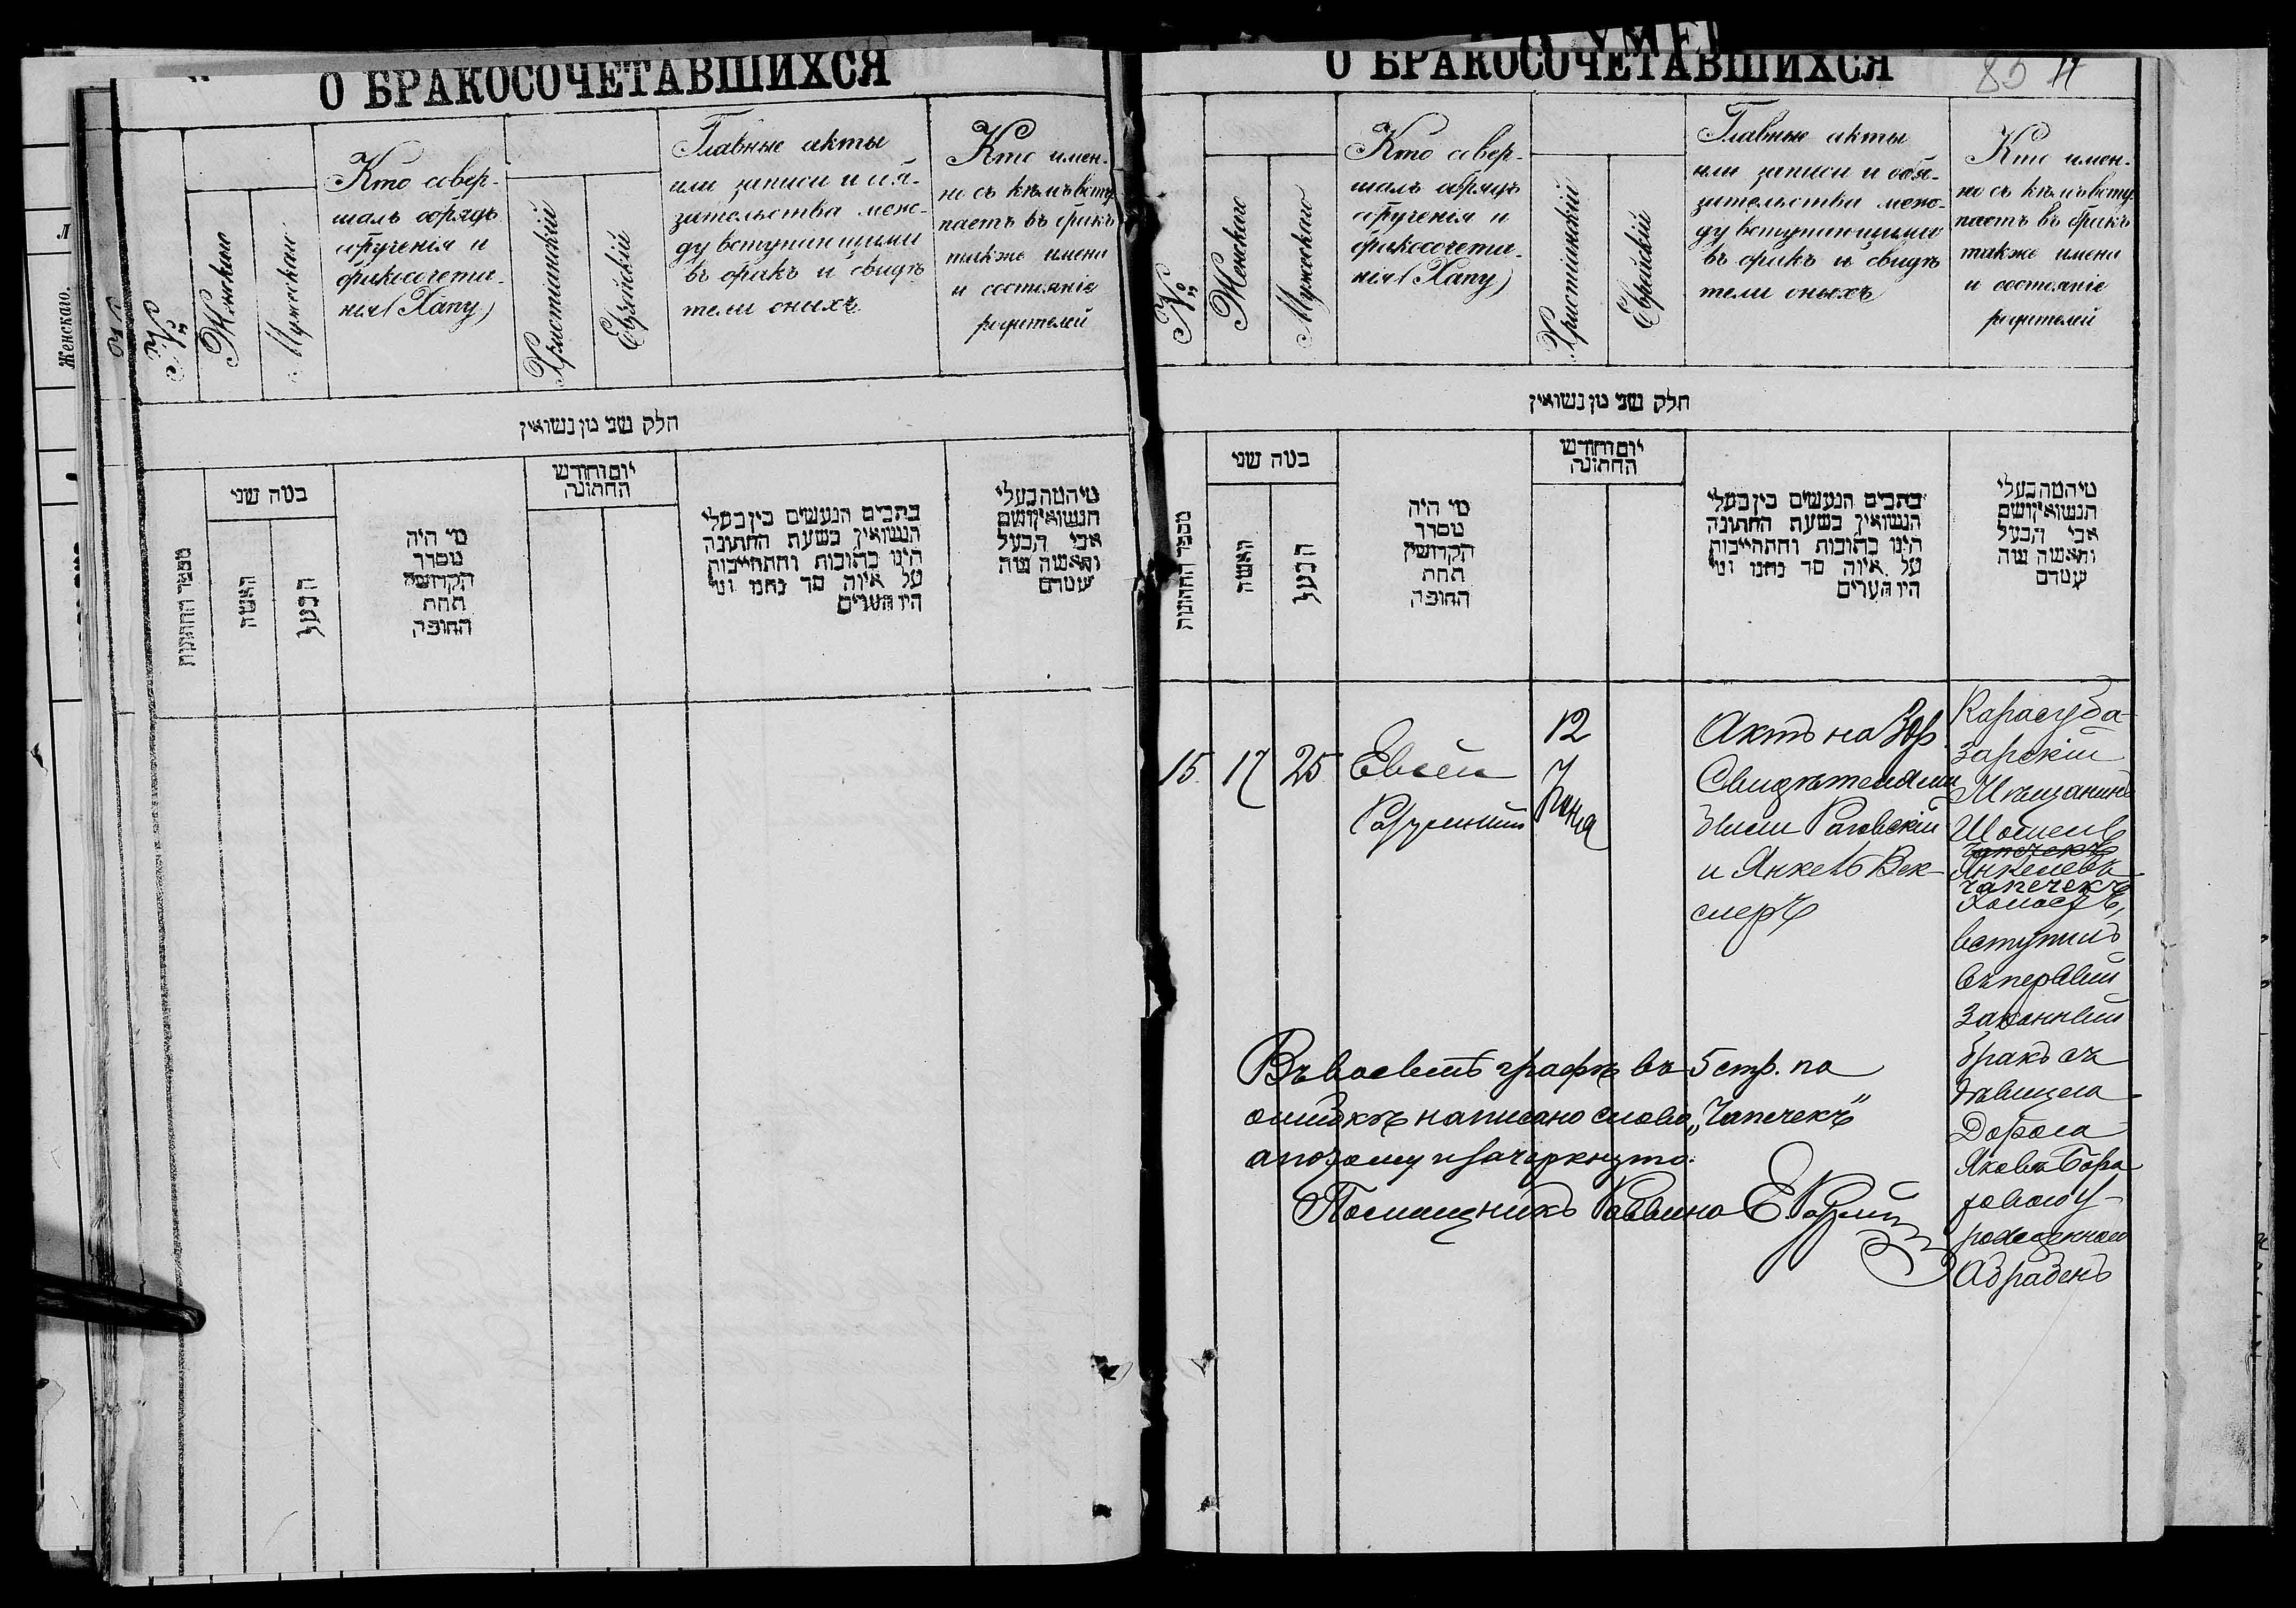 О БРАКОСОЧЕТАВШИХСЯ
Женскаго.
Женскаго
Мужескаго
Кто совер-
шалъ обрядъ
обрученія и
бракосочета-
нія (Хапу)
Христіанскій
Еврейскій
Главные акты
или записи и обя-
зательства меж-
ду вступающими
въ бракъ и свидѣ
тели оныхъ
Кто имен-
но съ кѣмъ всту
паетъ въ бракъ
также имена
и состояніе
родителей
חלק שני מן נשואין
מספר החתונות
כמה שני
האשה
הבעל
מי היה
מסדר
הקדושין
תחת
החופה
יום וחודש
החתונה
כתבים הנעשים בין בעלי
הנשואין בשעת החתונה
היינו כתובות והתחייבות
על איזה סך נתנו ומי
היו העדים
מי המה בעלי
הנשואין ושם
אבי הבעל
והאשה ומה
עמדם
О БРАКОСОЧЕТАВШИХСЯ
№
Женскаго
Мужескаго
Кто совер-
шалъ обрядъ
обрученія и
бракосочета-
нія (Хапу)
Христіанскій
Еврейскій
Главные акты
или записи и обя-
зательства меж-
ду вступающими
въ бракъ и свидѣ
тели оныхъ
Кто имен-
но съ кѣмъ всту
паетъ въ бракъ
также имена
и состояніе
родителей
חלק שני מן נשואין
מספר החתונות
כמה שני
האשה
הבעל
מי היה
מסדר
הקדושין
תחת
החופה
יום וחודש
החתונה
כתבים הנעשים בין בעלי
הנשואין בשעת החתונה
היינו כתובות והתחייבות
על איזה סך נתנו ומי
היו העדים
מי המה בעלי
הנשואין ושם
אבי הבעל
והאשה ומה
עמדם
15. 17 25
12
Актъ на
Свидѣтелями
были Раговскій
и Янкель Век-
слеръ
Карасуба-
зарскій
Мѣщанинъ
Чапчекъ
Янкелевъ
Чапчекъ
холостъ,
вступилъ
въ первый
законный
бракъ съ
дѣвицею
Яковъ
рожденною
Въ восьмой графѣ въ 5 стр. по
ошибкѣ написано слово „Чапчекъ"
а потому и зачеркнуто.
Помощникъ Раввина Е